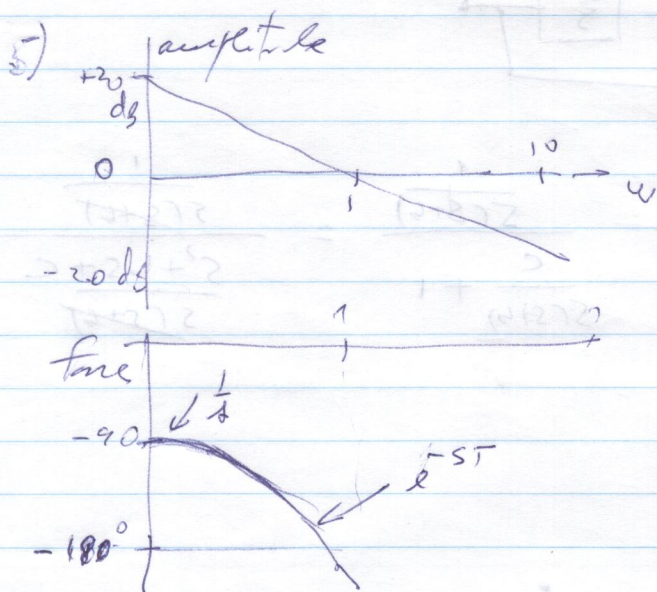 5) amplitude
+20
db
0
1
10
ω
-20 db
1
fase
1/s
-90
e^-ST
-180°